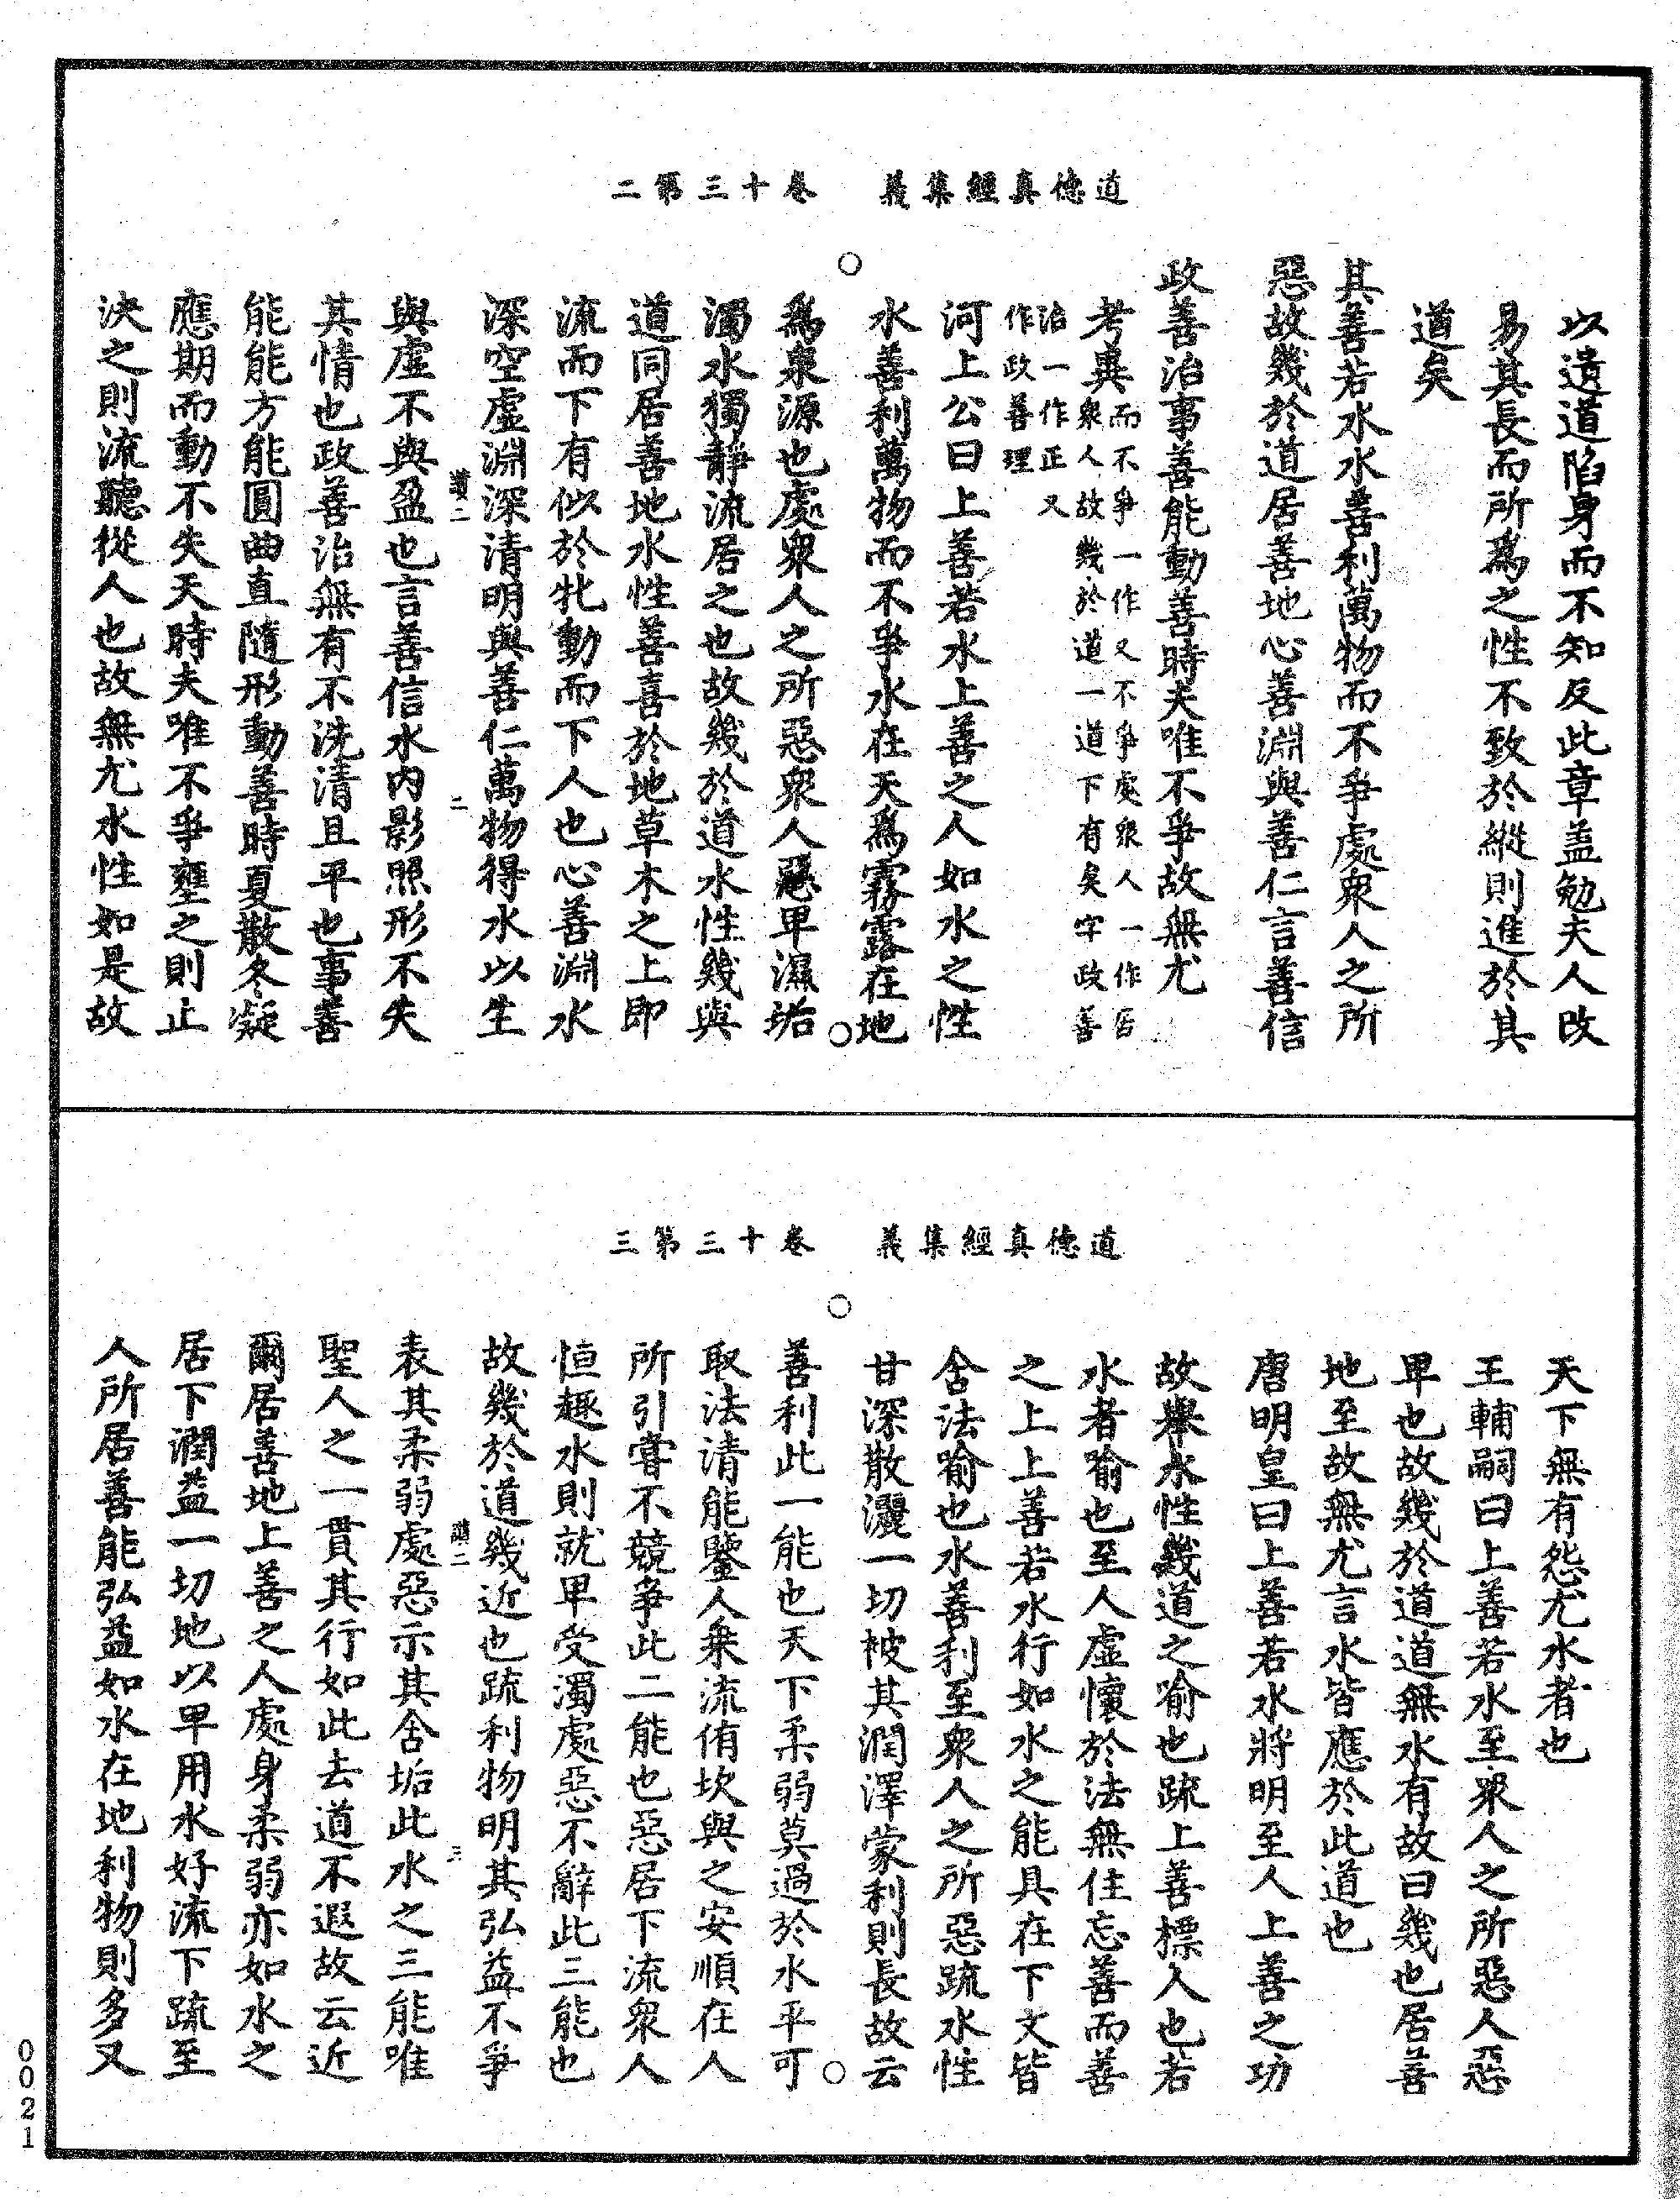 道德真經集義　卷十三第二
以遺道陷身而不知反此章盖勉夫人改
易其長而所爲之性不致於縱則進於其
道矣
其善若水水善利萬物而不爭處衆人之所
惡故幾於道居善地心善淵與善仁言善信
政善治事善能動善時夫唯不爭故無尤
考異而不爭一作又不爭處衆人一作居
衆人故幾於道一道下有矣字政善
治一作正又
作政善理
河上公曰上善若水上善之人如水之性
水善利萬物而不爭水在天爲霧露在地
爲泉源也處衆人之所惡衆人惡卑濕垢
濁水獨靜流居之也故幾於道水性幾與
道同居善地水性善喜於地草木之上即
流而下有似於牝動而下人也心善淵水
深空虛淵深清明與善仁萬物得水以生
讃二　二
與虛不與盈也言善信水內影照形不失
其情也政善治無有不洗清且平也事善
能能方能圓曲直隨形動善時夏散冬凝
應期而動不失天時夫唯不爭壅之則止
決之則流聽從人也故無尤水性如是故
道德真經集義　卷十三第三
天下無有怨尤水者也
王輔嗣曰上善若水至衆人之所惡人惡
卑也故幾於道道無水有故曰幾也居善
地至故無尤言水皆應於此道也
唐明皇曰上善若水將明至人上善之功
故舉水性幾道之喻也疏上善標人也若
水者喻也至人虛懷於法無住忘善而善
之上上善若水行如水之能具在下文皆
舍法喻也水善利至衆人之所惡疏水性
甘深散灑一切被其潤澤蒙利則長故云
善利此一能也天下柔弱莫過於水平可
取法清能鑒人乗流侑坎與之安順在人
所引嘗不競爭此二能也惡居下流衆人
恒趣水則就卑受濁處惡不辭此三能也
故幾於道幾近也疏利物明其弘益不爭
讃二　三
表其柔弱處惡示其舍垢此水之三能唯
聖人之一貫其行如此去道不遐故云近
爾居善地上善之人處身柔弱亦如水之
居下潤益一切地以卑用水好流下疏至
人所居善能弘益如水在地利物則多又
0021